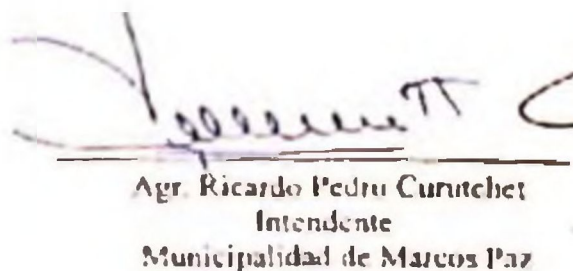 Agr. Ricardo Pedro Curutchet
Intendente
Municipalidad de Marcos Paz